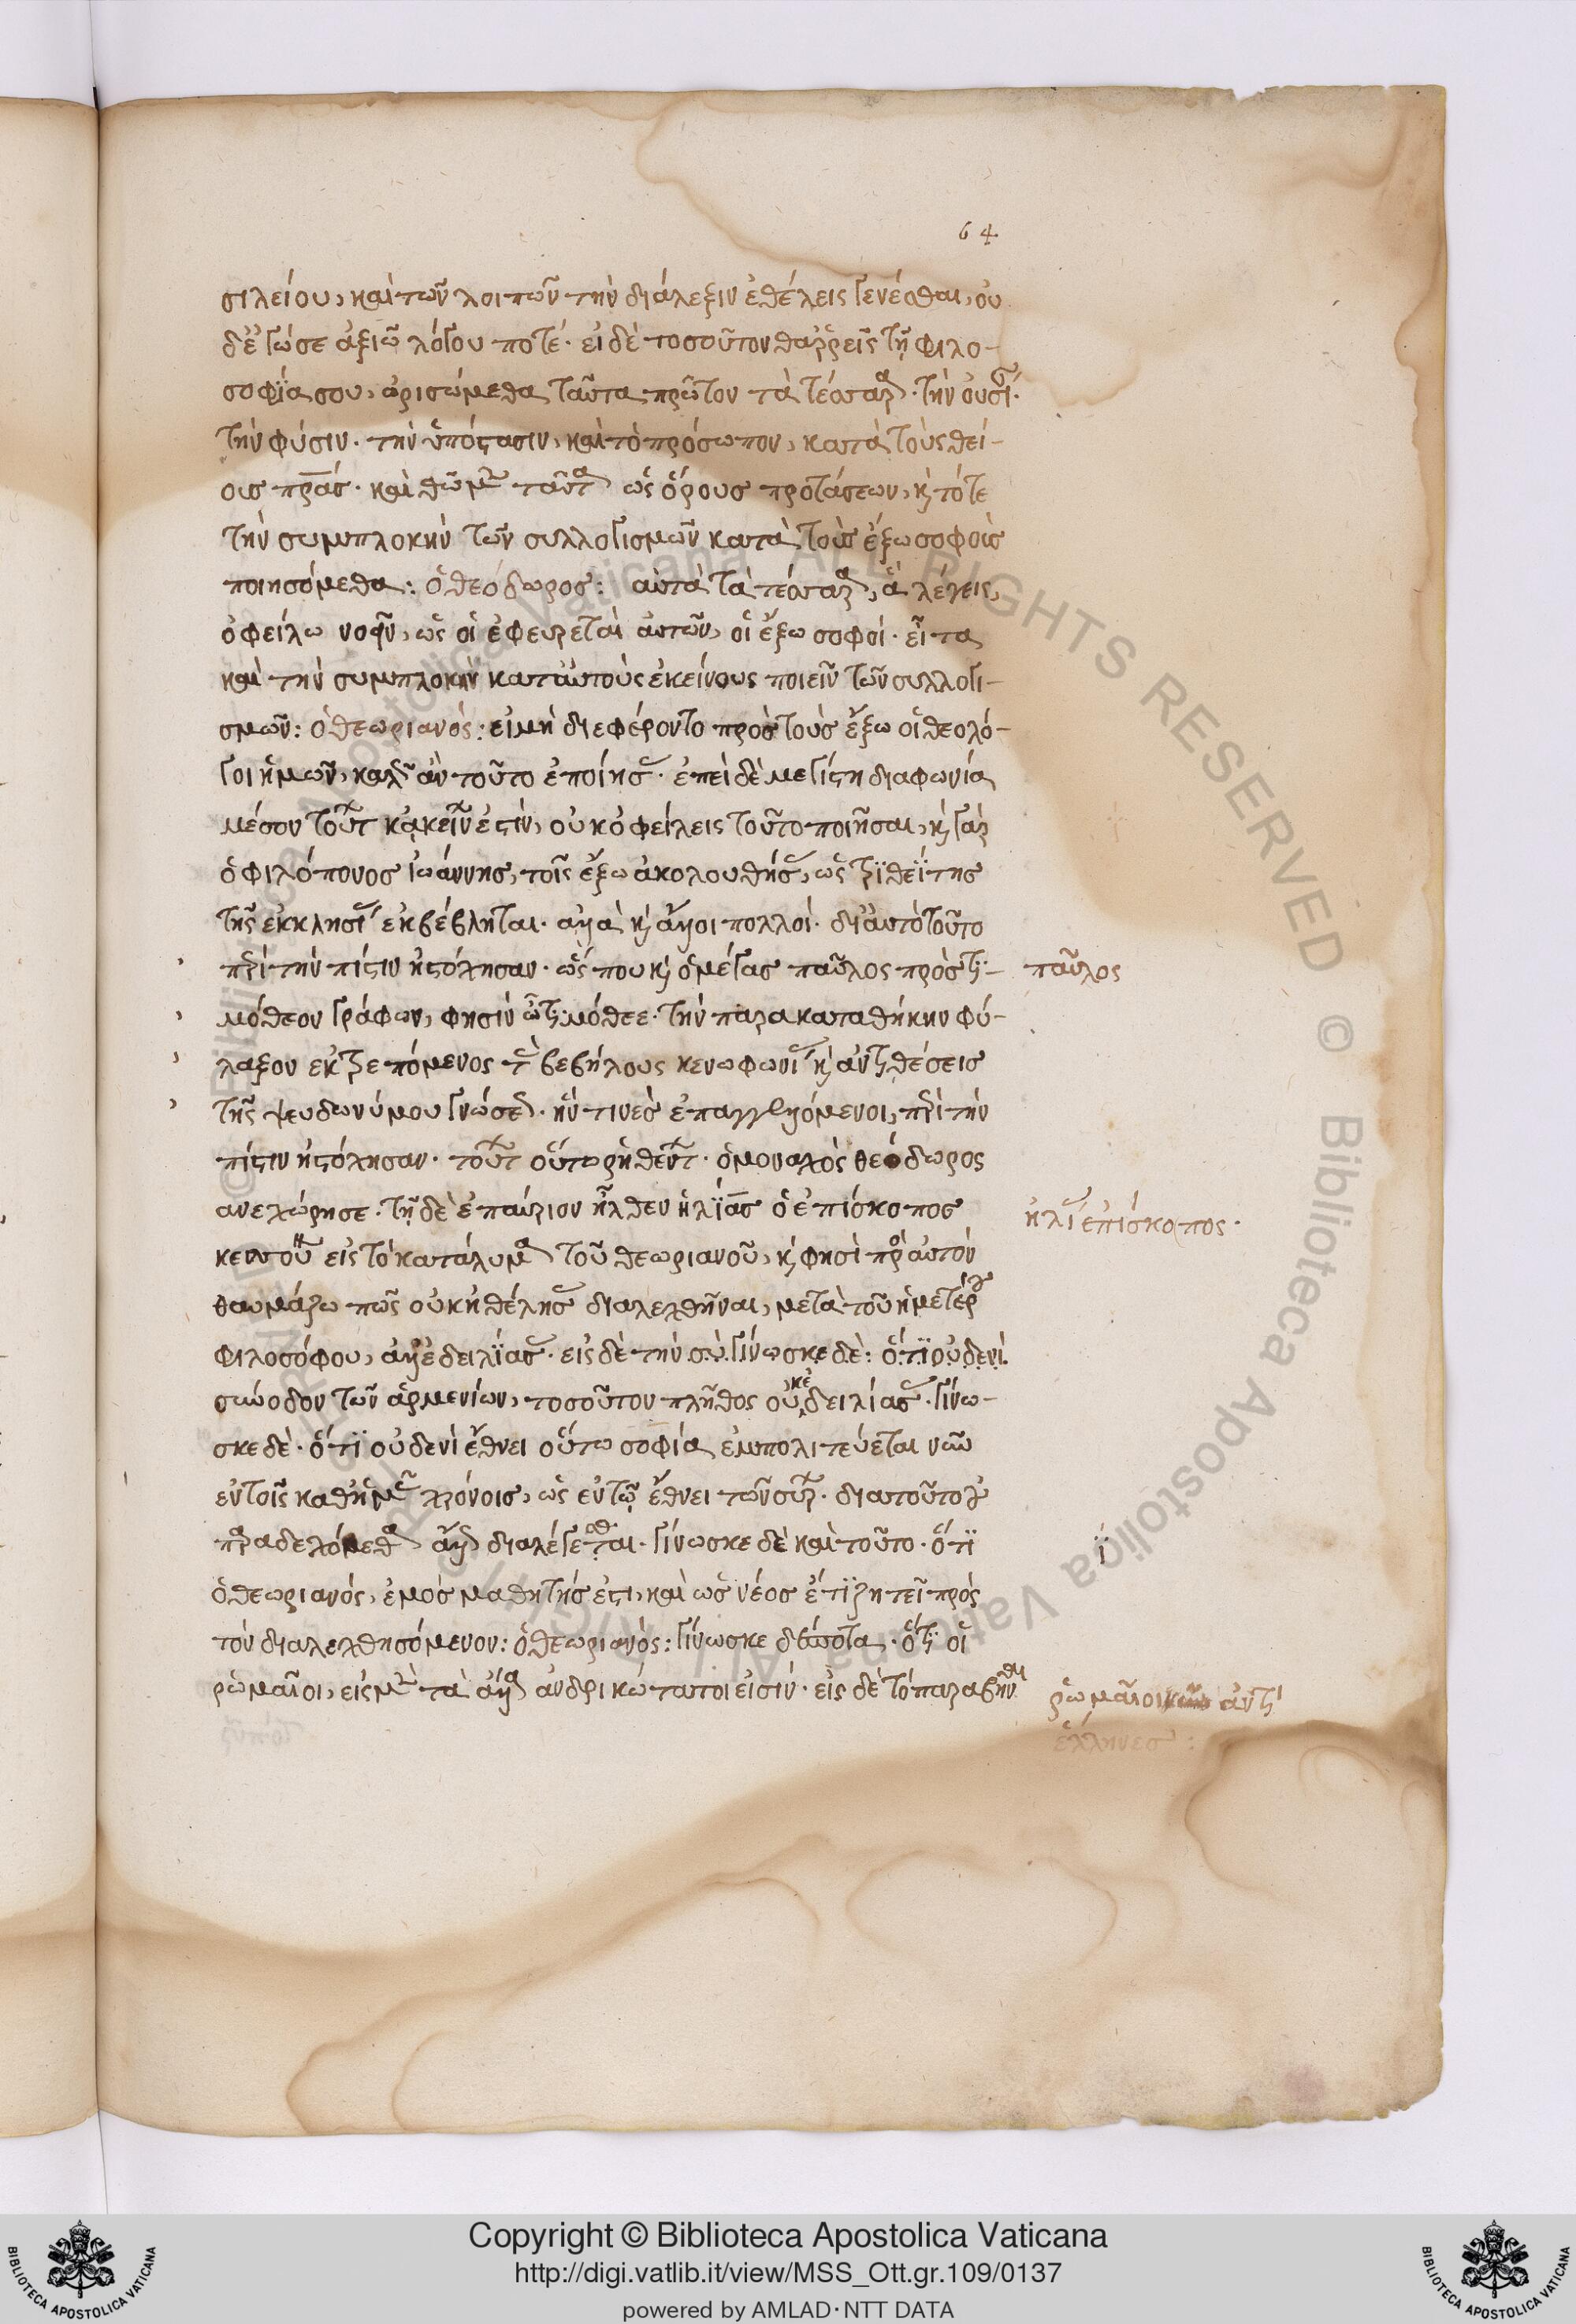 64
σιλείου, καὶ τῶν λοιπῶν τὴν διάλεξιν ἐθέλεις γενέσθαι, οὐ
δ' ἐγώ σε ἀξιῶ λόγου ποτέ. εἰ δὲ τοσοῦτον θαρρεῖς τῇ φιλο-
σοφίᾳ σου, ὁρισώμεθα ταῦτα πρῶτον τὰ τέσσαρα. τὴν οὐσίαν.
τὴν φύσιν. τὴν ὑπόστασιν, καὶ τὸ πρόσωπον, κατὰ τοὺς θεί-
ους πρας. καὶ θῶμεν ταῦτα ὡς ὅρους προτάσεων, κ τότε
τὴν συμπλοκὴν τῶν συλλογισμῶν κατὰ τοὺς ἔξω σοφοὺς
ποιησόμεθα: ὁ θεόδωρος: αὐτὰ τὰ τέσσαρα, ἃ λέγεις,
ὀφείλω νοεῖν, ὡς οἱ ἐφευρεταὶ αὐτῶν, οἱ ἔξω σοφοί. εἶτα
καὶ τὴν συμπλοκὴν κατ' αὐτοὺς ἐκείνους ποιεῖν τῶν συλλογι-
σμῶν: ὁ θεωριανός: εἰ μὴ διεφέροντο πρὸς τοὺς ἔξω οἱ θεολό-
γοι ἡμῶν, καλῶς ἂν τοῦτο ἐποίησας. ἐπεὶ δὲ μεγίστη διαφωνία
μέσον τούτων κἀκείνων ἐστίν, οὐκ ὀφείλεις τοῦτο ποιῆσαι, κ γὰρ
ὁ φιλόπονος ἰωάννης, τοῖς ἔξω ἀκολουθήσας, ὡς τριθεΐτης
τῆς ἐκκλησίας ἐκβέβληται. ἀλλὰ κ ἄλλοι πολλοί. δι' αὐτὸ τοῦτο
περὶ τὴν πίστιν ἠστόχησαν. ὥς που κ ὁ μέγας παῦλος πρὸς τι-
παῦλος
μόθεον γράφων, φησίν ὦ τιμόθεε. τὴν παρακαταθήκην φύ-
λαξον ἐκτρεπόμενος τὰς βεβήλους κενοφωνίας κ ἀντιθέσεις
τῆς ψευδωνύμου γνώσεως. ἥν τινες ἐπαγγελλόμενοι, περὶ τὴν
πίστιν ἠστόχησαν. τούτων οὕτω ῥηθέντων. ὁ μοναχὸς θεόδωρος
ἀνεχώρησε. τῇ δὲ ἐπαύριον ἦλθεν ἡλίας ὁ ἐπίσκοπος
ἡλίας ἐπίσκοπος.
κεσσουνίου εἰς τὸ κατάλυμα τοῦ θεωριανοῦ, κ φησὶ πρὸς αὐτόν
θαυμάζω πῶς οὐκ ἠθέλησας διαλεχθῆναι, μετὰ τοῦ ἡμετέρου
φιλοσόφου, ἀλλ' ἐδειλίασας. εἰς δὲ τὴν συ γίνωσκε δὲ: ὅτι οὐδενὶ
σύνοδον τῶν ἀρμενίων, τοσοῦτον πλῆθος οὐκ ἐδειλίασας. γίνω-
σκε δὲ. ὅτι οὐδενὶ ἔθνει οὕτω σοφία ἐμπολιτεύεται νῦν
ἐν τοῖς καθ' ἡμᾶς χρόνοις, ὡς ἐν τῷ ἔθνει τῶν σύρων. διὰ τοῦτο οὐ
παραδεχόμεθα ἄλλως διαλέγεσθαι. γίνωσκε δὲ καὶ τοῦτο. ὅτι
ὁ θεωριανός, ἐμὸς μαθητής ἐστι, καὶ ὡς νέος ἔτι ζητεῖ πρὸς
τὸν διαλεχθησόμενον: ὁ θεωριανὸς: γίνωσκε δέσποτα. ὅτι οἱ
ῥωμαῖοι, εἰς μὲν τὰ ἄλλα ἀνδρικώτατοί εἰσιν. εἰς δὲ τὸ παραβῆναι
ῥωμαῖοι ἀντὶ
ἕλληνες:
Copyright © Biblioteca Apostolica Vaticana
http://digi.vatlib.it/view/MSS_Ott.gr.109/0137
powered by AMLAD·NTT DATA
BIBLIOTECA APOSTOLICA VATICANA
BIBLIOTECA APOSTOLICA VATICANA